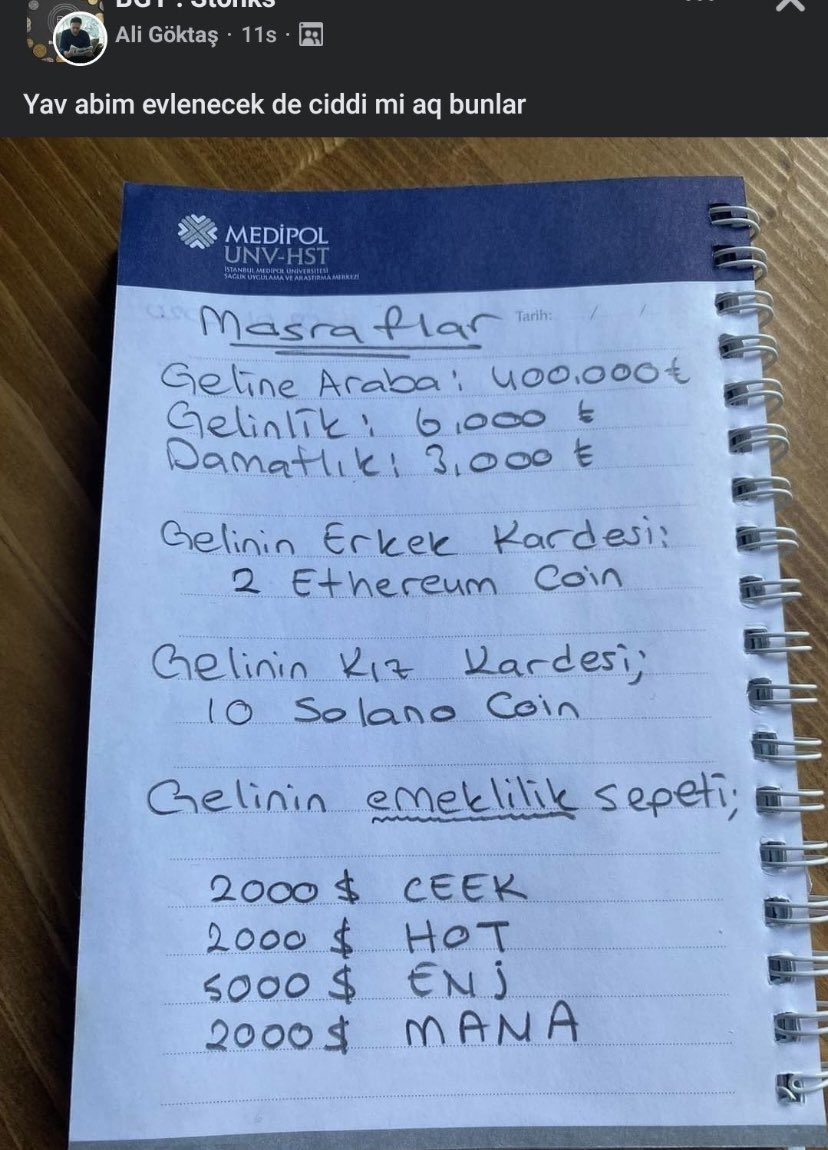 BGT : Stonks
Ali Göktaş · 11s ·
Yav abim evlenecek de ciddi mi aq bunlar
MEDİPOL
UNV-HST
İSTANBUL MEDİPOL ÜNİVERSİTESİ
SAĞLIK UYGULAMA VE ARAŞTIRMA MERKEZİ
Masraflar Tarih: / /
Geline Araba: 400.000₺
Gelinlik: 6.000 ₺
Damatlık: 3.000 ₺
Gelinin Erkek Kardesi:
2 Ethereum Coin
Gelinin Kız Kardesi;
10 Solano Coin
Gelinin emeklilik sepeti;
2000 $ CEEK
2000 $ HOT
5000 $ ENJ
2000 $ MANA